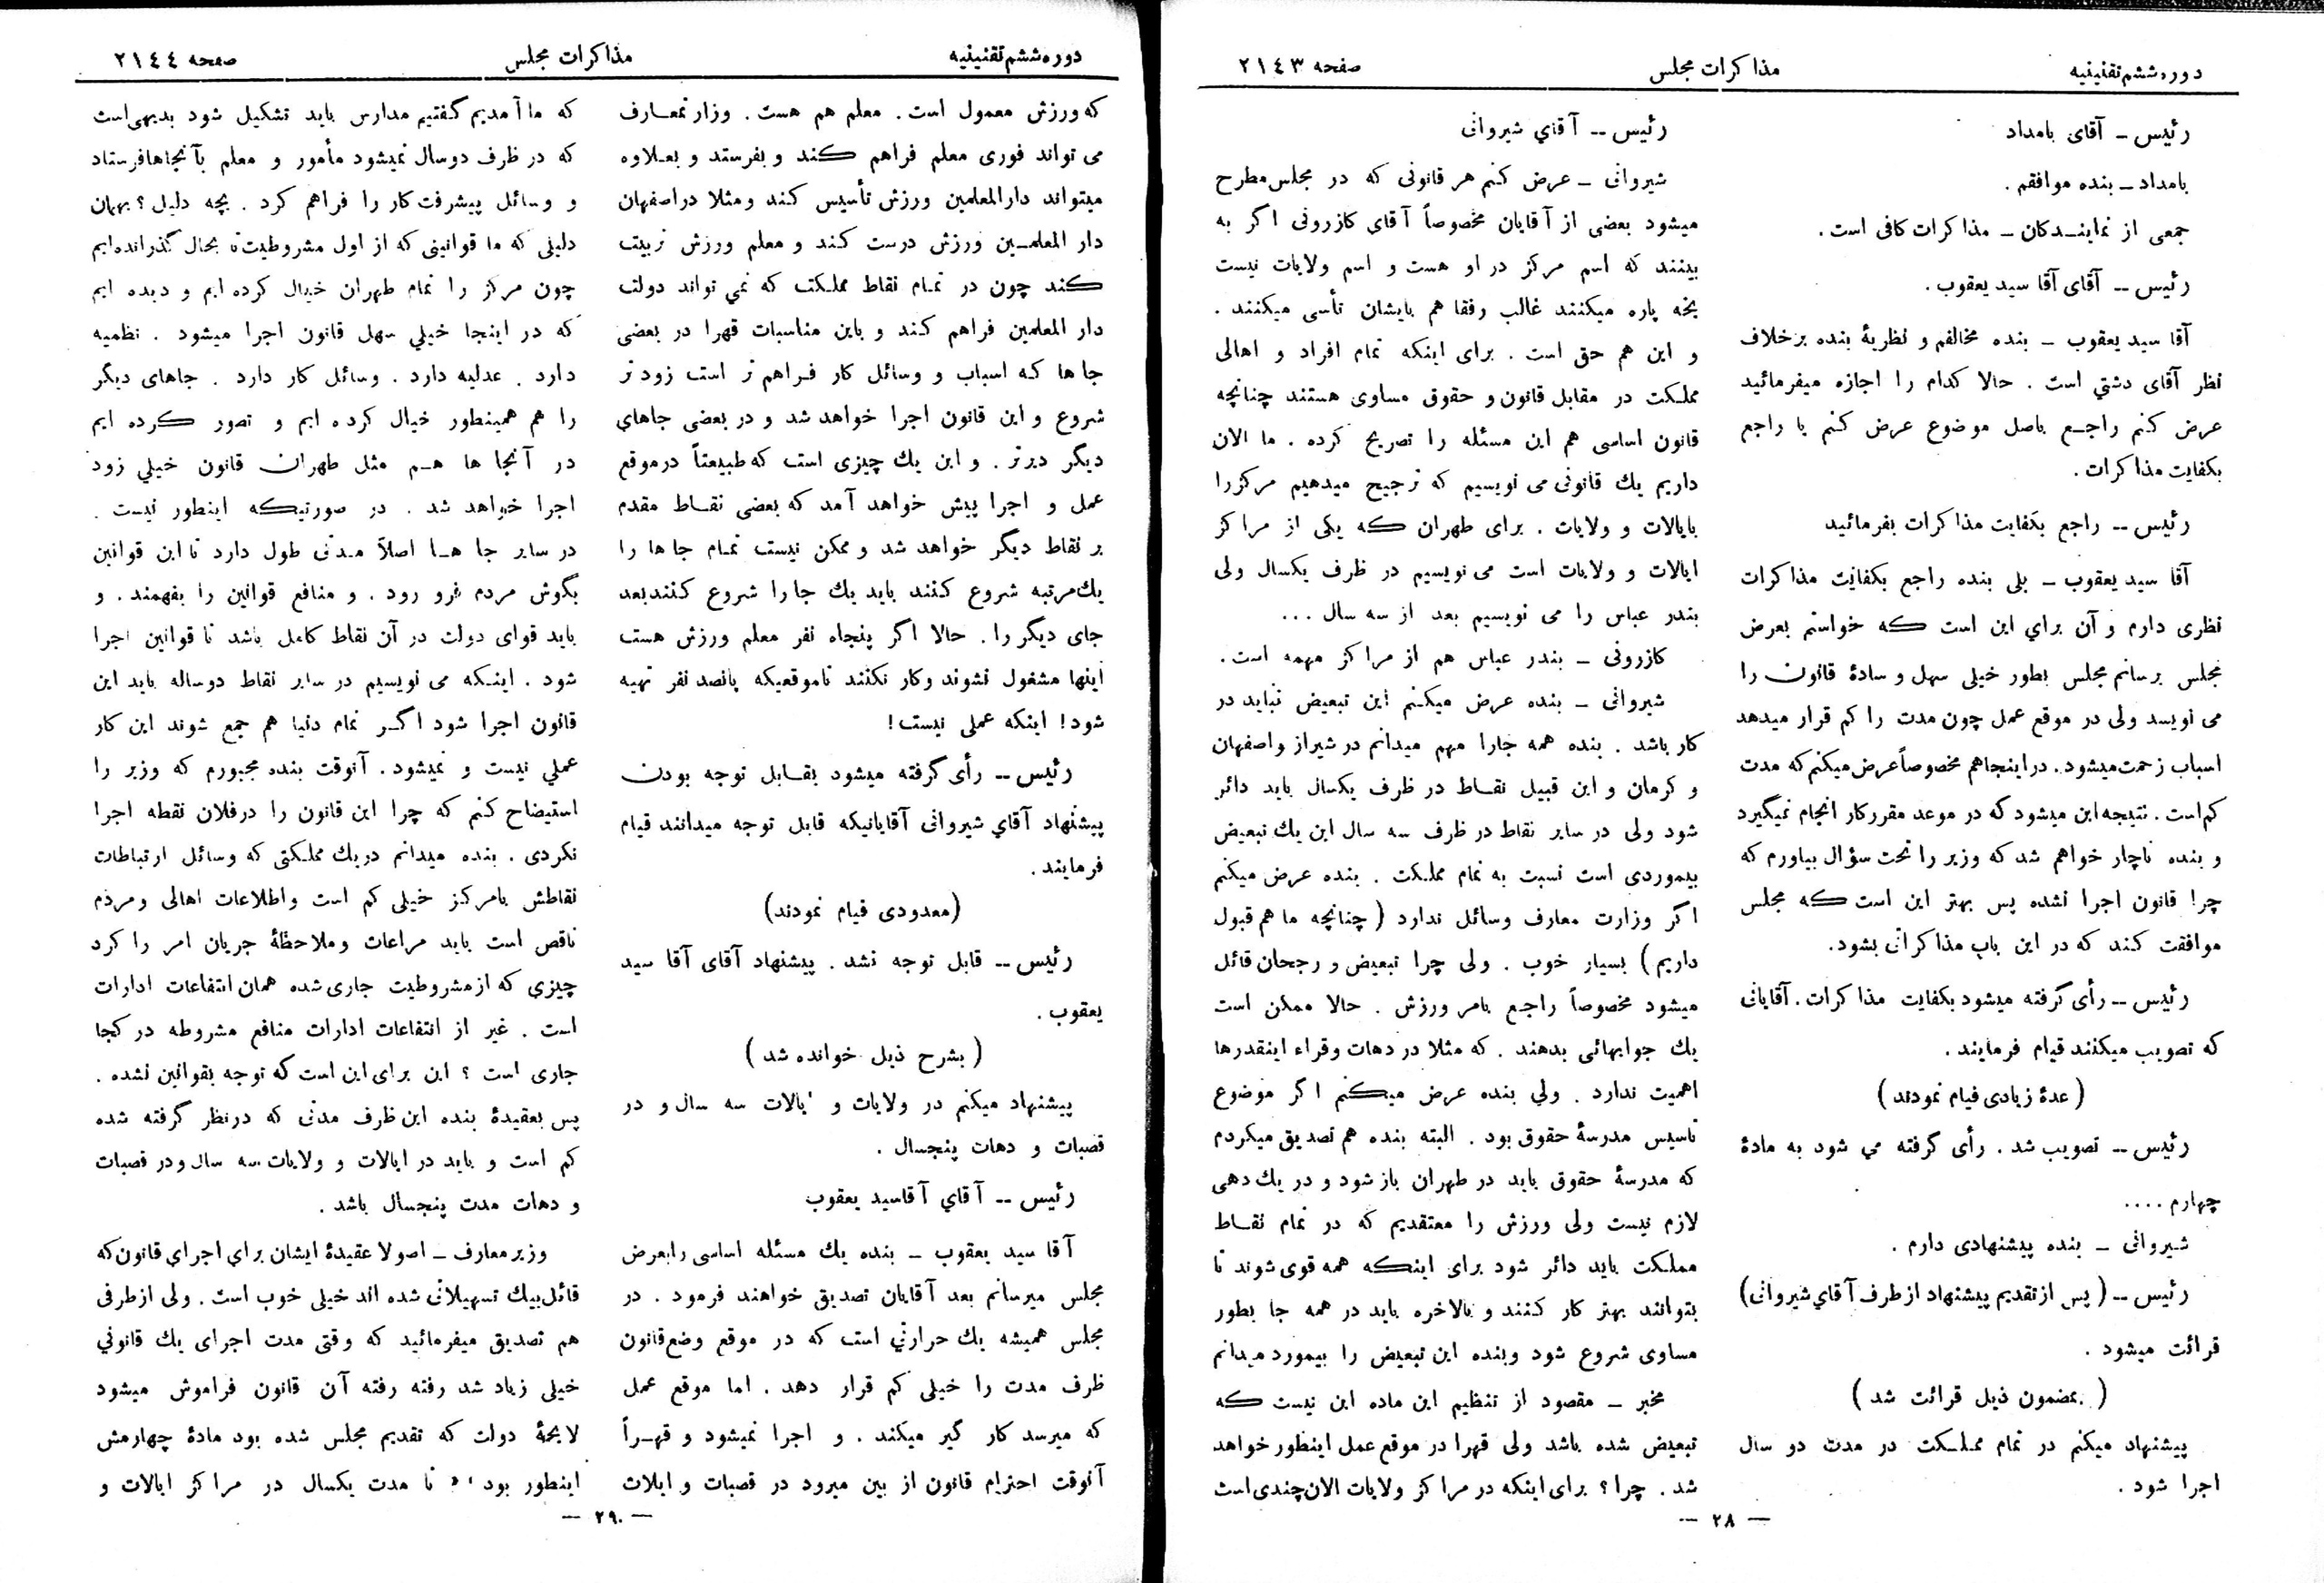 دوره ششم تقنینیه
مذاکرات مجلس
صفحه ۲۱۴۳
رئیس ــ آقای بامداد
بامداد ــ بنده موافقم .
جمعی از نمایندکان ــ مذاکرات کافی است .
رئیس ــ آقای آقا سید یعقوب .
آقا سید یعقوب ــ بنده مخالفم و نظریهٔ بنده برخلاف
نظر آقای دشتی است . حالا کدام را اجازه میفرمائید
عرض کنم راجع باصل موضوع عرض کنم یا راجع
بکفایت مذاکرات .
رئیس ــ راجع بکفایت مذاکرات بفرمائید
آقا سید یعقوب ــ بلی بنده راجع بکفایت مذاکرات
نظری دارم و آن برای این است که خواستم بعرض
مجلس برسانم مجلس بطور خیلی سهل و سادهٔ قانون را
می نویسد ولی در موقع عمل چون مدت را کم قرار میدهد
اسباب زحمت میشود . در اینجا هم مخصوصاً عرض میکنم که مدت
کم است . نتیجه این میشود که در موعد مقرر کار انجام نمیگیرد
و بنده ناچار خواهم شد که وزیر را تحت سؤال بیاورم که
چرا قانون اجرا نشده پس بهتر این است که مجلس
موافقت کند که در این باب مذاکراتی بشود.
رئیس ــ رأی گرفته میشود بکفایت مذاکرات. آقایانی
که تصویب میکنند قیام فرمایند .
( عدهٔ زیادی قیام نمودند )
رئیس ــ تصویب شد . رأی گرفته می شود به مادهٔ
چهارم ....
شیروانی ــ بنده پیشنهادی دارم .
رئیس ــ ( پس از تقدیم پیشنهاد از طرف آقای شیروانی)
قرائت میشود .
( بمضمون ذیل قرائت شد )
پیشنهاد میکنم در تمام مملکت در مدت دو سال
اجرا شود .
رئیس ــ آقای شیروانی
شیروانی ــ عرض کنم هر قانونی که در مجلس مطرح
میشود بعضی از آقایان مخصوصاً آقای کازرونی اگر به
بینند که اسم مرکز در او هست و اسم ولایات نیست
یخه پاره میکنند غالب رفقا هم بایشان تأسی میکنند .
و این هم حق است . برای اینکه تمام افراد و اهالی
مملکت در مقابل قانون و حقوق مساوی هستند چنانچه
قانون اساسی هم این مسئله را تصریح کرده . ما الان
داریم یك قانونی می نویسیم که ترجیح میدهیم مرکز را
بایالات و ولایات . برای طهران که یکی از مراکز
ایالات و ولایات است می نویسیم در ظرف یکسال ولی
بندر عباس را می نویسیم بعد از سه سال ...
کازرونی ــ بندر عباس هم از مراکز مهمه است .
شیروانی ــ بنده عرض میکنم این تبعیض نباید در
کار باشد . بنده همه جا را مهم میدانم در شیراز و اصفهان
و کرمان و این قبیل نقاط در ظرف یکسال باید دائر
شود ولی در سایر نقاط در ظرف سه سال این یك تبعیض
بیموردی است نسبت به تمام مملکت . بنده عرض میکنم
اگر وزارت معارف وسائل ندارد ( چنانچه ما هم قبول
داریم ) بسیار خوب . ولی چرا تبعیض و رجحان قائل
میشود مخصوصاً راجع بامر ورزش . حالا ممکن است
یك جوابهائی بدهند . که مثلا در دهات وقراء اینقدرها
اهمیت ندارد . ولی بنده عرض میکنم اگر موضوع
تاسیس مدرسهٔ حقوق بود . البته بنده هم تصدیق میکردم
که مدرسهٔ حقوق باید در طهران باز شود و در یك دهی
لازم نیست ولی ورزش را معتقدیم که در تمام نقاط
مملکت باید دائر شود برای اینکه همه قوی شوند تا
بتوانند بهتر کار کنند و بالاخره باید در همه جا بطور
مساوی شروع شود وبنده این تبعیض را بیمورد میدانم
مخبر ــ مقصود از تنظیم این ماده این نیست که
تبعیض شده باشد ولی قهرا در موقع عمل اینطور خواهد
شد . چرا ؟ برای اینکه در مراکز ولایات الان چندی است
— ۲۸ —
دوره ششم تقنینیه
مذاکرات مجلس
صفحه ۲۱۴۴
که ورزش معمول است . معلم هم هست . وزارتمعارف
می تواند فوری معلم فراهم کند و بفرستد و بعلاوه
میتواند دارالمعلمین ورزش تأسیس کند ومثلا دراصفهان
دار المعلمین ورزش درست کند و معلم ورزش تربیت
کند چون در تمام نقاط مملکت که نمی تواند دولت
دار المعلمین فراهم کند و باین مناسبات قهرا در بعضی
جا ها که اسباب و وسائل کار فراهم تر است زود تر
شروع و این قانون اجرا خواهد شد و در بعضی جاهای
دیگر دیرتر . و این یك چیزی است که طبیعتاً در موقع
عمل و اجرا پیش خواهد آمد که بعضی نقاط مقدم
بر نقاط دیگر خواهد شد و ممکن نیست تمام جا ها را
یك مرتبه شروع کنند باید یك جا را شروع کنند بعد
جای دیگر را . حالا اگر پنجاه نفر معلم ورزش هست
اینها مشغول نشوند وکار نکنند تاموقعیکه پانصد نفر تهیه
شود ! اینکه عملی نیست !
رئیس ــ رأی گرفته میشود بقابل توجه بودن
پیشنهاد آقای شیروانی آقایانیکه قابل توجه میدانند قیام
فرمایند .
(معدودی قیام نمودند)
رئیس ــ قابل توجه نشد . پیشنهاد آقای آقا سید
یعقوب .
( بشرح ذیل خوانده شد )
پیشنهاد میکنم در ولایات و ایالات سه سال و در
قصبات و دهات پنجسال .
رئیس ــ آقای آقاسید یعقوب
آقا سید یعقوب ــ بنده یك مسئله اساسی را بعرض
مجلس میرسانم بعد آقایان تصدیق خواهند فرمود . در
مجلس همیشه یك حرارتی است که در موقع وضع قانون
ظرف مدت را خیلی کم قرار دهد . اما موقع عمل
که میرسد کار گیر میکند . و اجرا نمیشود و قهراً
آنوقت احترام قانون از بین میرود در قصبات و ایلات
که ما آمدیم گفتیم مدارس باید تشکیل شود بدیهی است
که در ظرف دوسال نمیشود مأمور و معلم بآنجاها فرستاد
و وسائل پیشرفت کار را فراهم کرد . بچه دلیل ؟ بهمان
دلیلی که ما قوانینی که از اول مشروطیت تا بحال گذرانده ایم
چون مرکز را تمام طهران خیال کرده ایم و دیده ایم
که در اینجا خیلی سهل قانون اجرا میشود . نظمیه
دارد . عدلیه دارد . وسائل کار دارد . جاهای دیگر
را هم همینطور خیال کرده ایم و تصور کرده ایم
در آنجا ها هم مثل طهران قانون خیلی زود
اجرا خواهد شد . در صورتیکه اینطور نیست .
در سایر جا ها اصلاً مدتی طول دارد تا این قوانین
بگوش مردم فرو رود . و منافع قوانین را بفهمند . و
باید قوای دولت در آن نقاط کامل باشد تا قوانین اجرا
شود . اینکه می نویسیم در سایر نقاط دوساله باید این
قانون اجرا شود اگر تمام دنیا هم جمع شوند این کار
عملی نیست و نمیشود . آنوقت بنده مجبورم که وزیر را
استیضاح کنم که چرا این قانون را درفلان نقطه اجرا
نکردی . بنده میدانم دریك مملکتی که وسائل ارتباطات
نقاطش بامرکز خیلی کم است واطلاعات اهالی ومردم
ناقص است باید مراعات وملاحظهٔ جریان امر را کرد
چیزی که از مشروطیت جاری شده همان انتفاعات ادارات
است . غیر از انتفاعات ادارات منافع مشروطه در کجا
جاری است ؟ این برای این است که توجه بقوانین نشده .
پس بعقیدهٔ بنده این ظرف مدتی که درنظر گرفته شده
کم است و باید در ایالات و ولایات سه سال ودر قصبات
و دهات مدت پنجسال باشد .
وزیر معارف ــ اصولا عقیدهٔ ایشان برای اجرای قانون که
قائل بیك تسهیلاتی شده اند خیلی خوب است . ولی از طرفی
هم تصدیق میفرمائید که وقتی مدت اجرای یك قانونی
خیلی زیاد شد رفته رفته آن قانون فراموش میشود
لایحهٔ دولت که تقدیم مجلس شده بود مادهٔ چهارمش
اینطور بود « تا مدت یکسال در مراکز ایالات و
— ۲۹ —